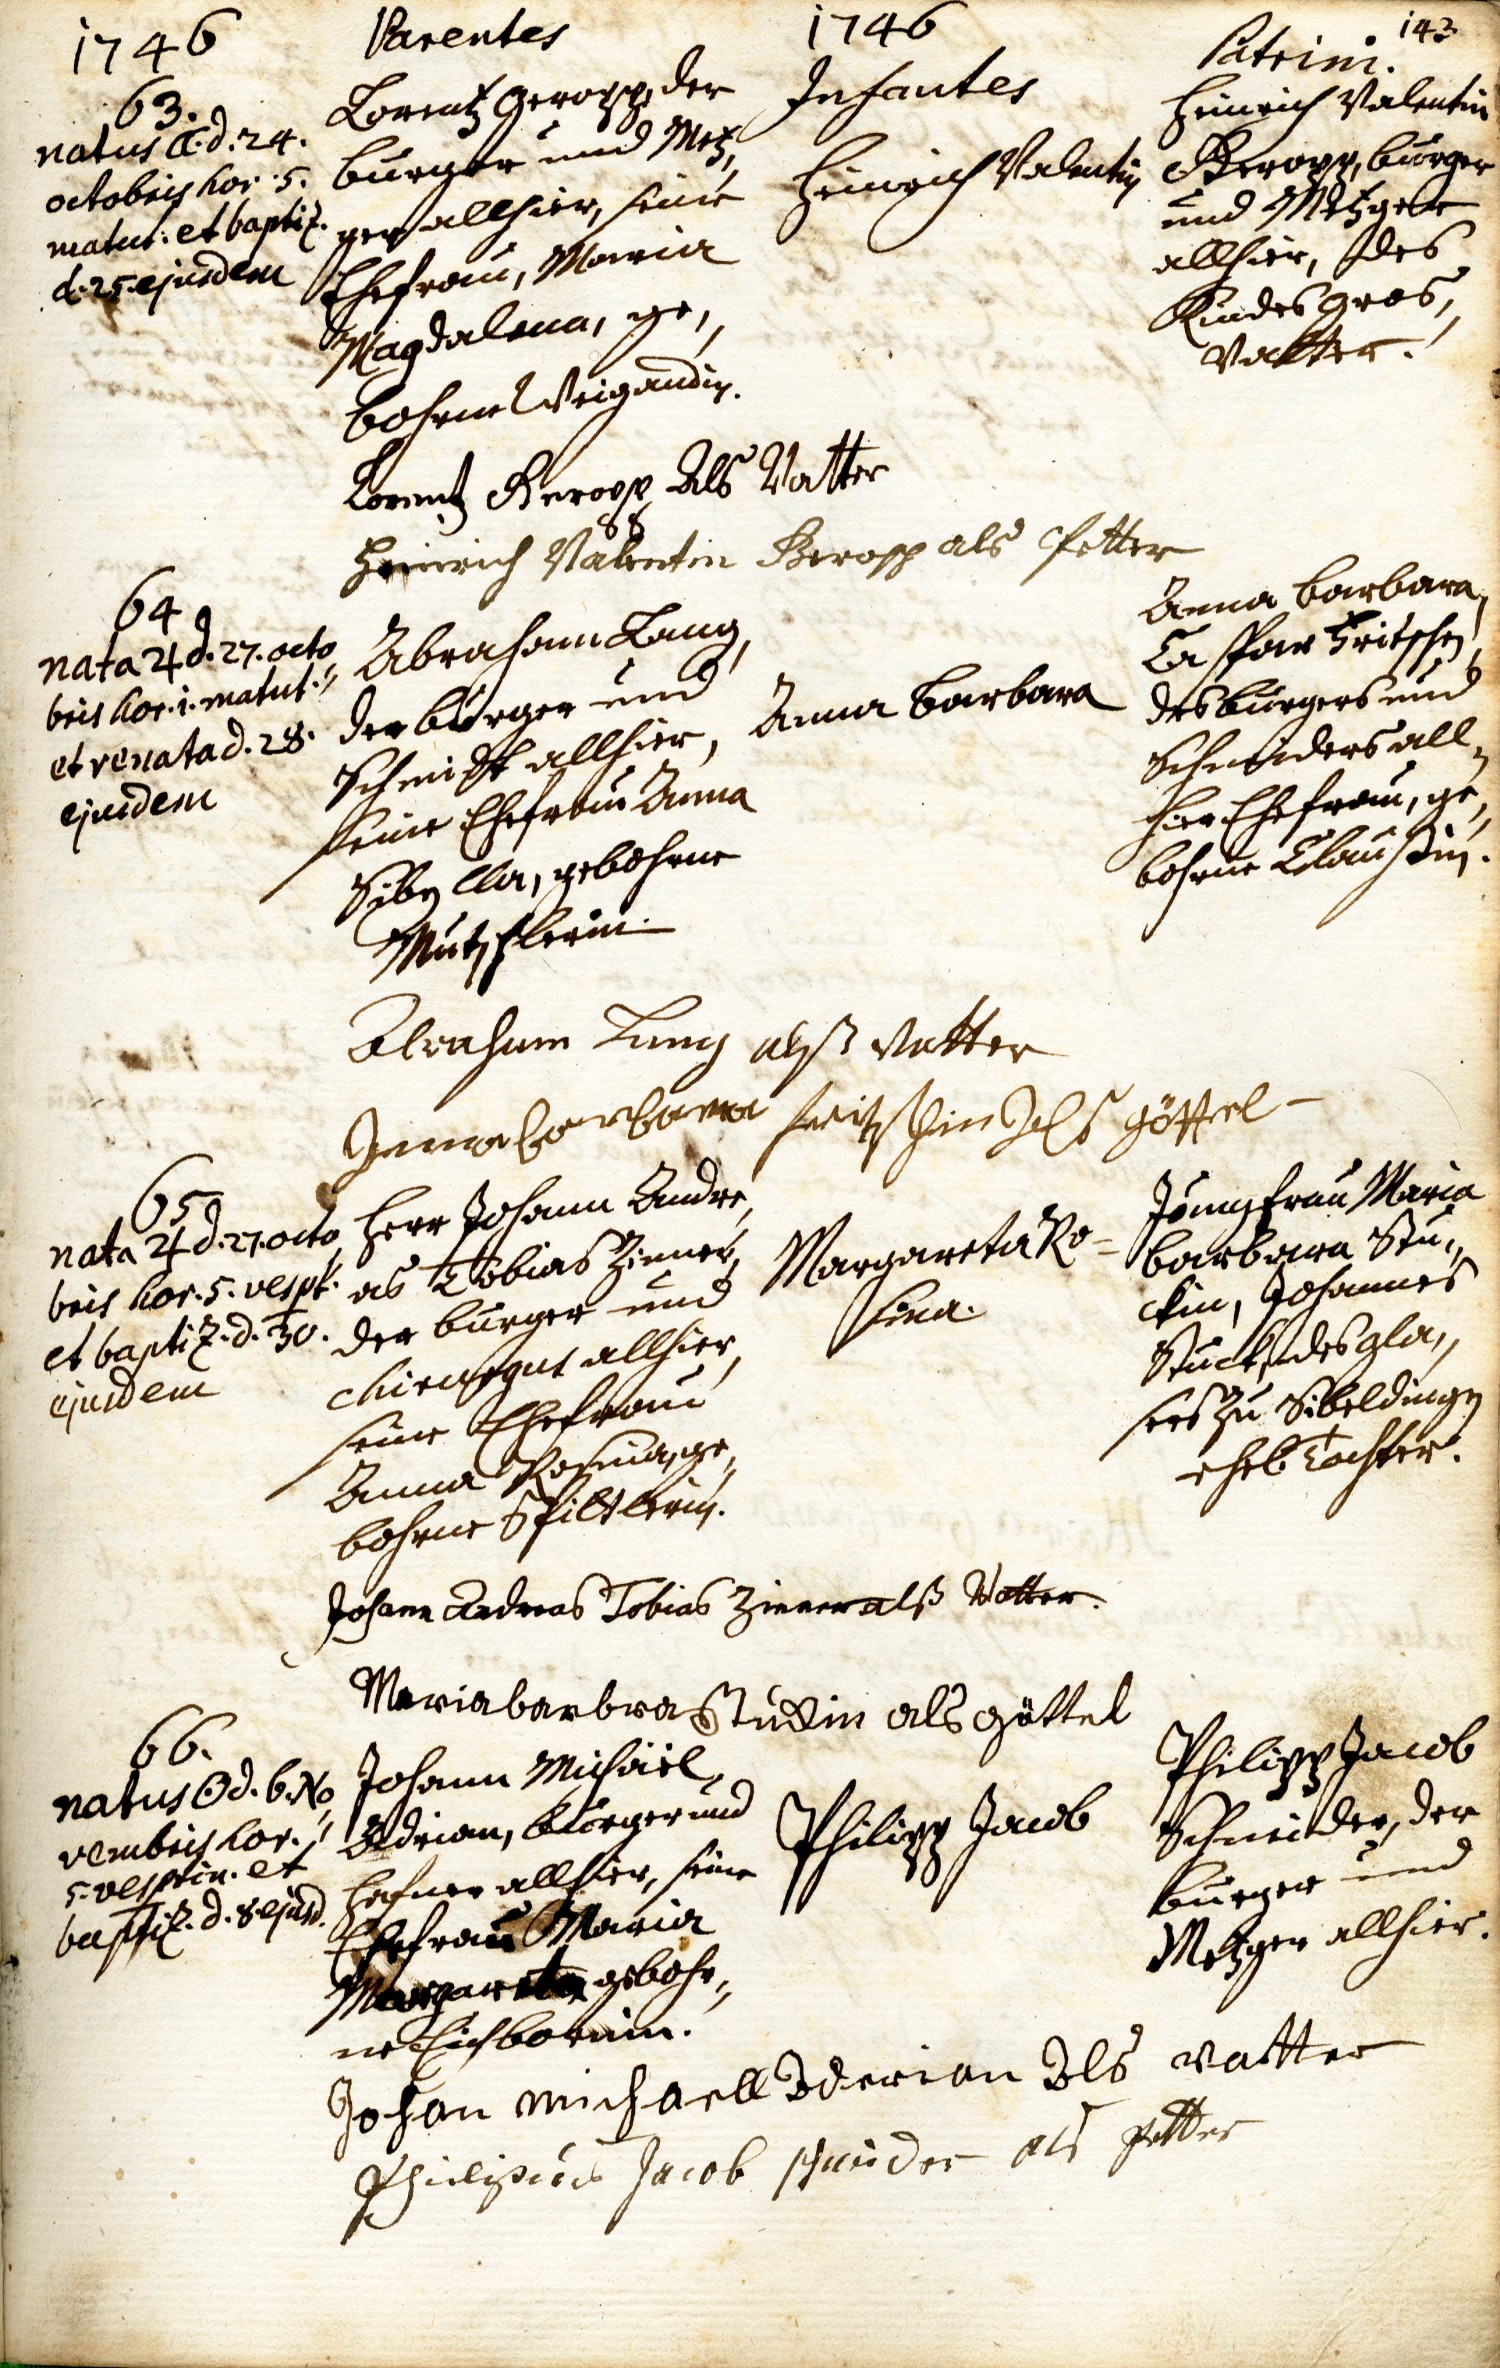 1746
Parentes
1746
Infantes
Patrini.
143
63.
natus ☾. d. 24.
octobris hor. 5.
matut. et baptiz.
d. 25. ejusdem
Lorentz Geropp, der
burger und Metz,
ger allhier, seine
Ehefrau, Maria
Magdalena, ge,,
bohrne Weigandin.
Heinrich Valentin
Heinrich Valentin
Geropp, burger
und Metzger
allhier, des
Kindes Gros,,
Vatter.
Lorentz Geropp Als Vatter
Heinrich Valentin Geropp als Petter
64
nata ♃ d. 27. octo
bris hor. 1. matut.
et renata d. 28.
ejusdem
Abraham Lang,
der burger und
Schmidt allhier,
seine Ehefrau Anna
Sibylla, gebohrne
Mutschlerin.
Anna Barbara
Anna Barbara,
Caspar Fritschen,
des burgers und
Schneiders all,,
hier Ehefrau, ge,,
bohrne Claussin.
Abraham Lang alß Vatter
Anna barbara fritzschin Als göttel
65
nata ♃ d. 27. octo
bris hor. 5. vespt.
et baptiz. d. 30.
ejusdem
Herr Johann Andre,
as Tobias Zinner,
der burger und
chirurgus allhier,
seine Ehefrau
Anna Rosina, ge,,
bohrne Spiltlerin.
Margareta Ro-
sina.
Jungfrau Maria
Barbara Stu,,
ckin, Johannes
Stucks, des gla,,
sers zu Sibeldingen
ehel. Tochter.
Johann Andreas Tobias Zinner alß Vatter.
Maria barbra Stuckin als göttel
66.
natus ☉ d. 6. No
vembris hor.
5. vesptin. et
baptiz. d. 8 ejusd.
Johann Michäel
Adrian, burger und
Hafner allhier, seine
Ehefrau Maria
Margareta gebohr,,
ne Eichbornin.
Philipp Jacob
Philipp Jacob
Schneider, der
burger und
Metzger allhier.
Johan Michaell Aderian Als Vatter
Philipus Jacob schneider als Petter